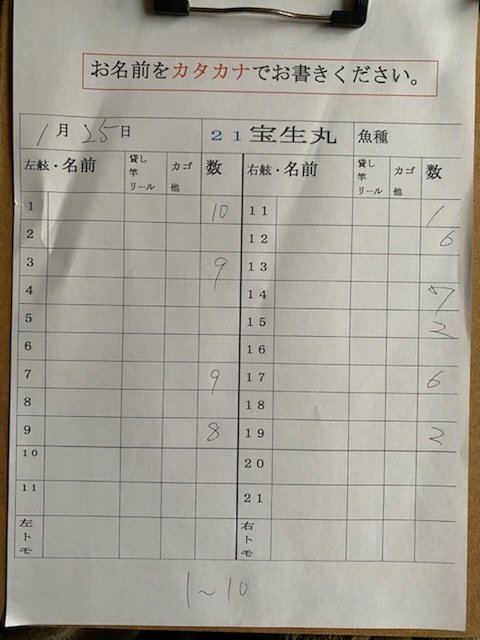 お名前をカタカナでお書きください。
1月25日 21宝生丸 魚種
左舷・名前 貸し竿リール カゴ他 数 右舷・名前 貸し竿リール カゴ他 数
1 10 11 1
2 12 6
3 9 13
4 14 7
5 15 2
6 16
7 9 17 6
8 18
9 8 19 2
10 20
11 21
左トモ 右トモ
1~10